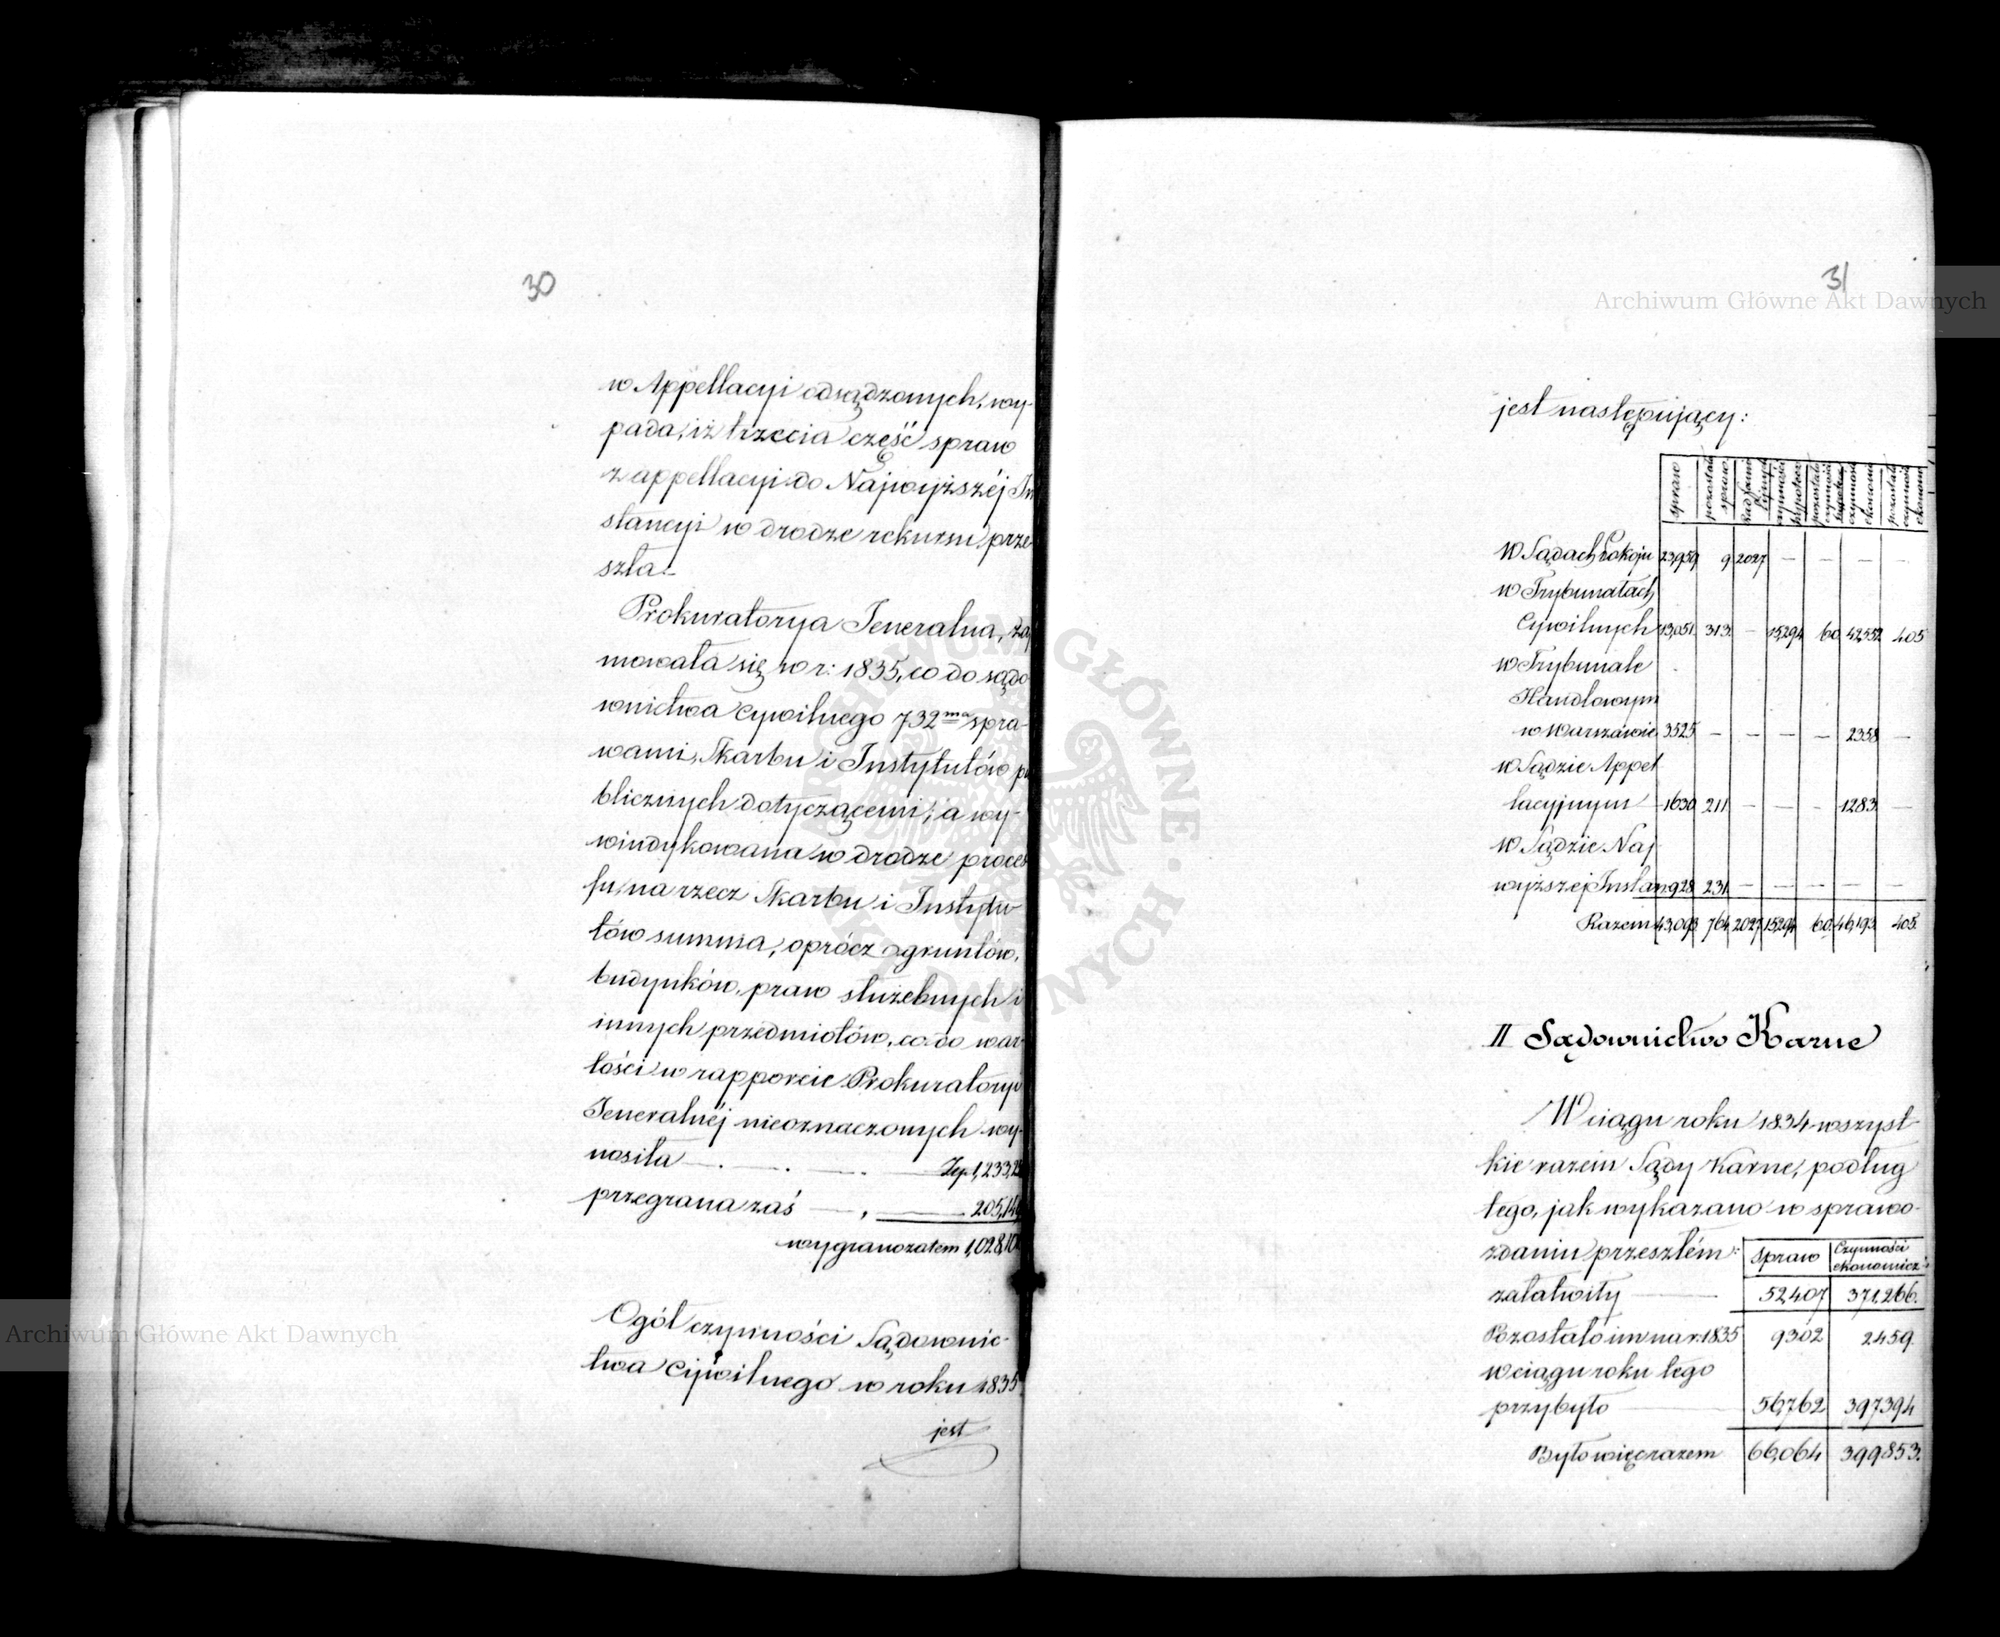 30
w Appellacyi odsądzonych, wy-
pada, iż trzecia część spraw
z appellacyi do Najwyższéj In
stancyi w drodze rekursu prze
szła.
Prokuratorya Jeneralna, za
mowała się w r: 1835, co do sądo
wnictwa cywilnego 732ma spra-
wami, Skarbu i Instytutów pu
blicznych dotyczącemi; a wy-
windykowana w drodze proces
su, na rzecz Skarbu i Instytu
tów summa, oprócz gruntów,
budynków, praw służebnych i
innych przedmiotów, co do war
tości w rapporcie Prokuratoryi
Jeneralnéj nieoznaczonych wy-
nosiła — . — . — . — Złp. 1,233,2
przegrana zaś — , — 205,14
wygrano zatem 1,028,10
Ogół czynności Sądownic-
twa Cywilnego w roku 1835
jest
31
jest następujący:
spraw | pozostało spraw | Rad famil | czynności hypotecz | pozostało czynności | czynności ekonomi | pozostało czynności ekonomi
W Sądach Pokoju 23,959 9 2027 — — — —
w Trybunałach
Cywilnych 13,051 313 — 15,294 60 42,552 405
w Trybunale
Handlowym
w Warszawie 3525 — — — — 2358 —
w Sądzie Appel
lacyjnym — 1630 211 — — — 1283 —
w Sądzie Naj
wyższej Instan 928 231 — — — — —
Razem 43,093 764 2027 15,294 60 46,193 405
II Sądownictwo Karne
W ciągu roku 1834 wszyst-
kie razem Sądy Karne, podług
tego, jak wykazano w sprawo-
zdaniu przeszłém: Spraw Czynności ekonomicz:
załatwiły — 52,407 371,266.
Pozostało im na r. 1835 9302 2459
w ciągu roku tego
przybyło — 56,762 397,394
Było więc razem 66,064 399,853.
Archiwum Główne Akt Dawnych
Archiwum Główne Akt Dawnych
ARCHIWUM GŁÓWNE AKT DAWNYCH